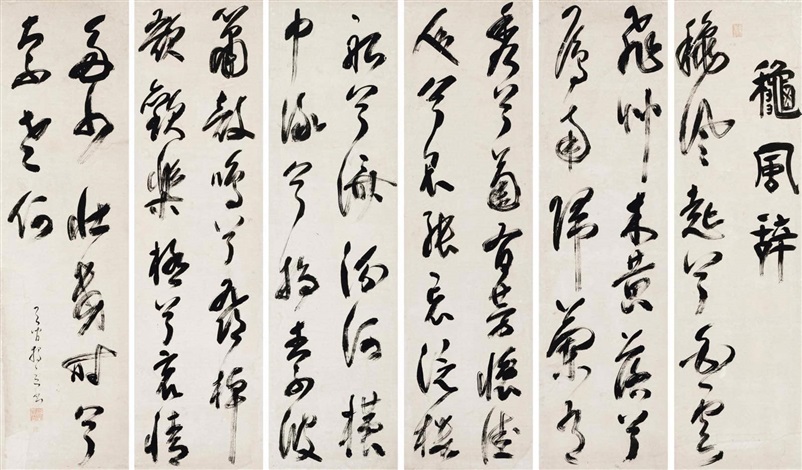 龝風辭
龝風起兮白雲
飛艸木黃落兮
鴈南歸蘭有
秀兮菊有芳懷佳
人兮不能忘泛樓
船兮濟汾河橫
中流兮揚素波
簫鼓鳴兮發棹
歌歡樂極兮哀情
多少壯幾時兮
奈老何